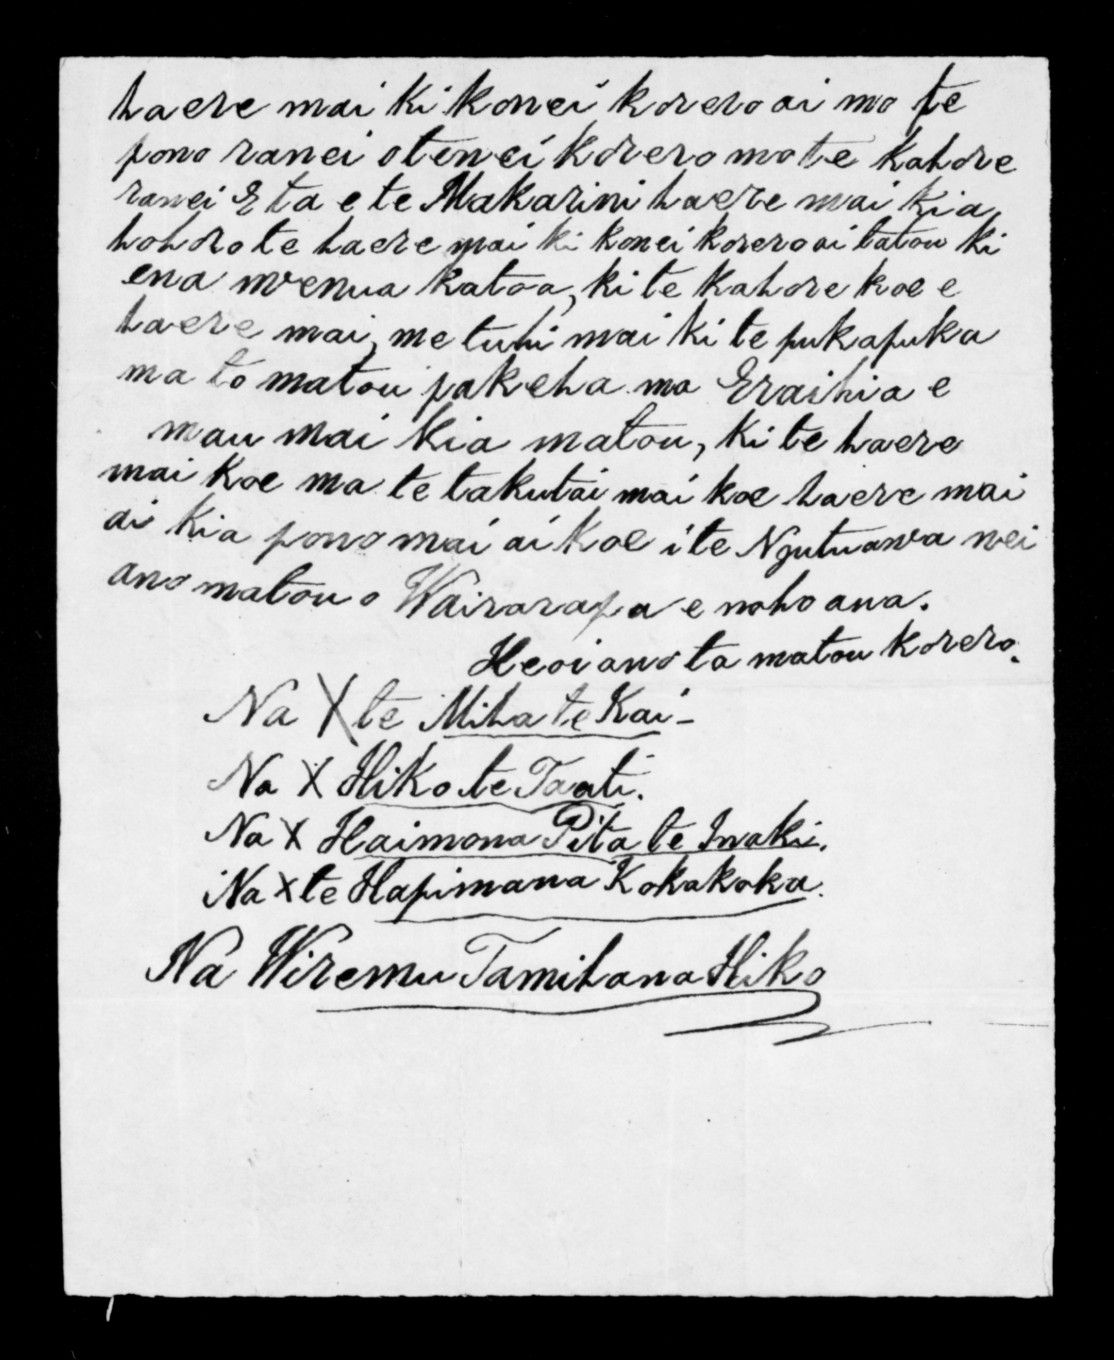 haere mai ki konei korero ai mo te
pono ranei o tenei korero mo te kahore
ranei E ta e te Makarini haere mai kia
hohoro te haere mai ki konei korero ai tatou ki
ena wenua katoa, ki te kahore koe e
haere mai, me tuhi mai ki te pukapuka
ma to matou pakeha ma Eraihia e
mau mai kia matou, ki te haere
mai koe ma te takutai mai koe haere mai
ai kia pono mai ai koe i te Ngutuawa nei
ano matou o Wairarapa e noho ana.
Heoi ano ta matou korero.
Na X te Miha te Kai-
Na X Hiko te Taati.
Na X Haimona Pita te Iwaki.
Na X te Hapimana Kokakoka.
Na Wiremu Tamihana Hiko